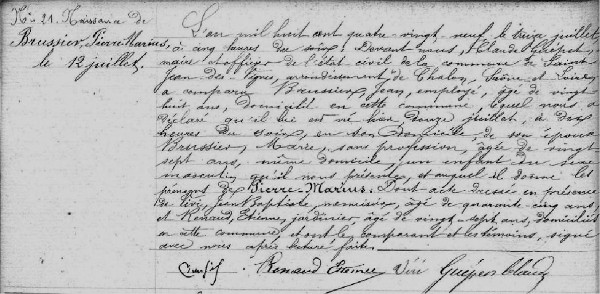 No 21. Naissance de
Brussier, Pierre-Marius,
le 12 juillet.
L'an mil huit cent quatre-vingt-neuf, le treize juillet
à cinq heures du soir, Devant nous, Claude Guépet,
maire et officier de l'état civil de la commune de Saint
Jean-des-Vignes, arrondissement de Chalon, Saône-et-Loire,
a comparu Brussier, Jean, employé, âgé de vingt
huit ans, domicilié en cette commune, lequel nous a
déclaré qu'il lui est né hier, douze juillet, à dix
heures du soir, en son domicile, de son épouse
Brussier, Marie, sans profession, âgée de vingt
sept ans, même domicile, un enfant du sexe
masculin qu'il nous présente, et auquel il donne les
prénoms de Pierre-Marius. Dont acte dressé en présence
de Viré, Jean Baptiste, menuisier, âgé de quarante-cinq ans,
et Renaud, Etienne, jardinier, âgé de vingt-sept ans, domiciliés
en cette commune, et ont le comparant et les témoins, signé
avec nous après lecture faite.
Renaud Etienne Viré